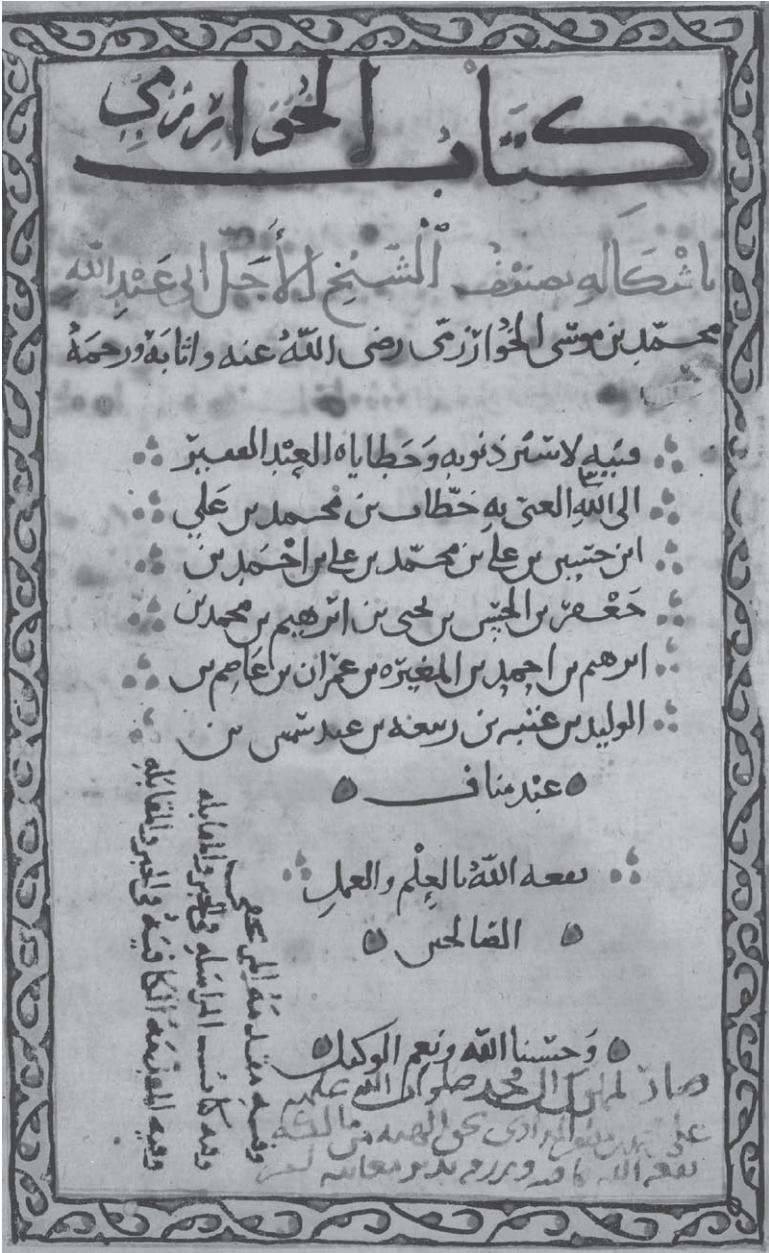 كتاب الخوارزمي
باشكاله تصنيف الشيخ الأجل ابي عبد الله
محمد بن موسى الخوارزمي رضى الله عنه واثابه ورحمه
لاسير ذنوبه وخطاياه العبد الفقير
الى الله الغنى به خطاب بن محمد بن علي
ابن حسين بن على بن محمد بن على بن احمد بن
جعفر بن الحسن بن يحيى بن ابرهيم بن محمد بن
ابرهيم بن احمد بن المغيره بن عمران بن عاصم بن
الوليد بن عتبه بن ربيعه بن عبد شمس بن
عبد مناف
نفعه الله بالعلم والعمل
الصالحين
وحسبنا الله ونعم الوكيل
صار محمد صلوات الله عليهم
على بن بحق
نفعه الله
وفيه مقدمه
وفيه كتاب في الجبر والمقابله
وفيه المقدمة الكافية في الجبر والمقابله